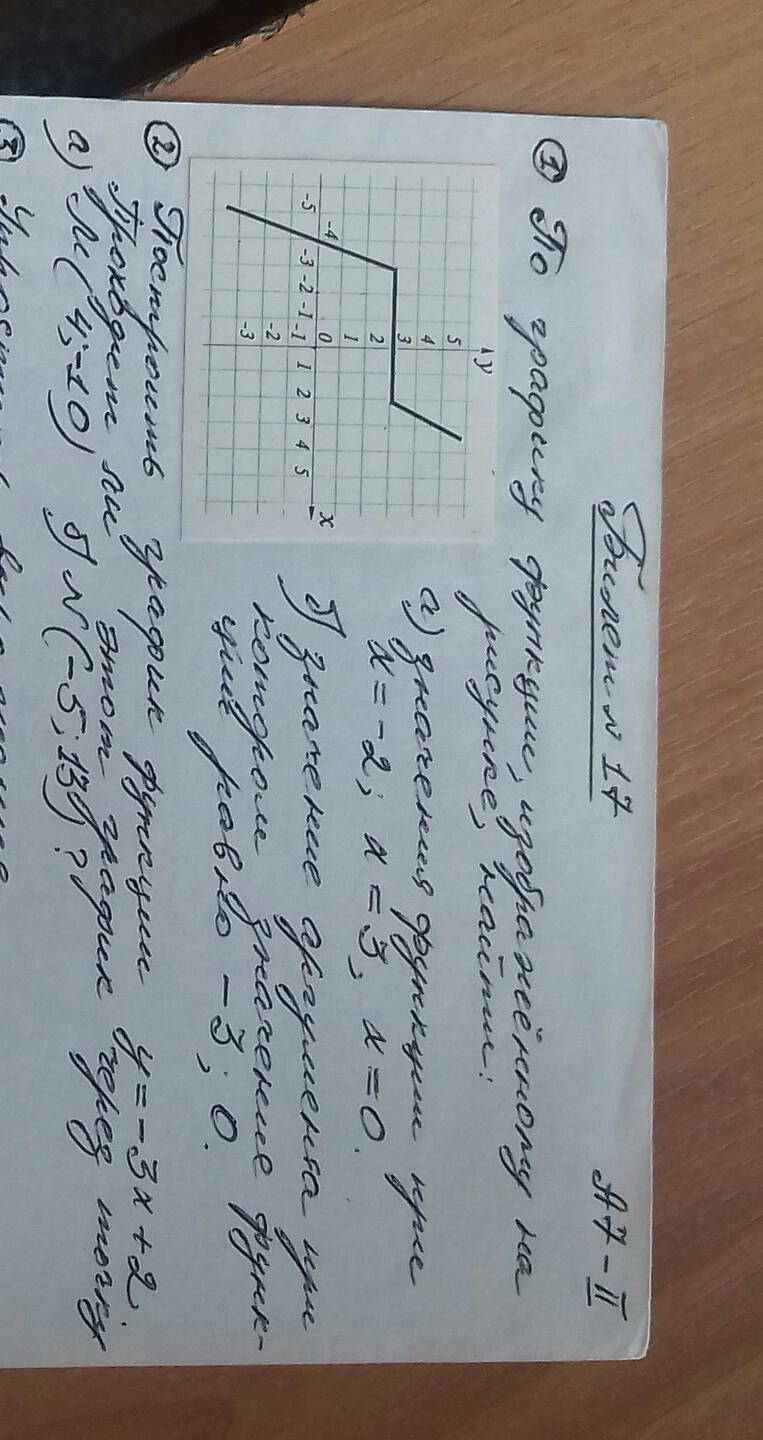 Билет №17
А7-II
① По графику функции, изображённому на
рисунке, найти:
а) значения функции при
x = -2; x = 3, x = 0.
б) значение аргумента при
котором значение функ-
ции равно -3; 0.
y
5
4
3
2
1
0
-1
-2
-3
-5 -4 -3 -2 -1 1 2 3 4 5 x
② Построить график функции y = -3x + 2.
Проходит ли этот график через точку
а) М(4; -10) б) N(-5; 13)?
③